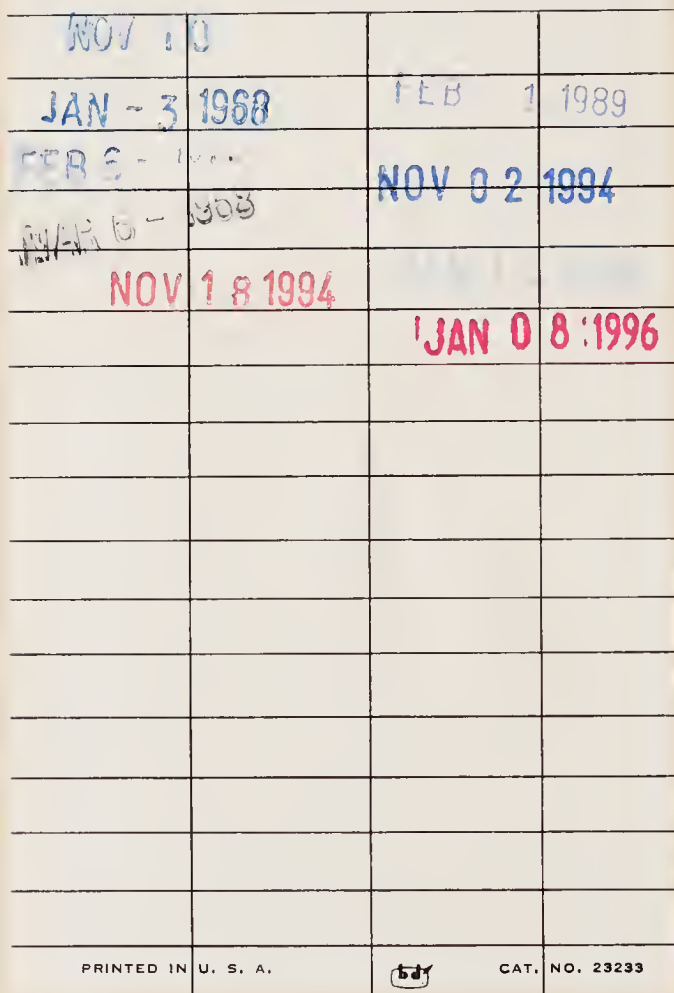 NOV 10
JAN - 3 1968
FEB 6 -
MAR 6 - 1968
NOV 18 1994
FEB 1 1989
NOV 02 1994
JAN 08 1996
PRINTED IN U. S. A.
bd
CAT. NO. 23233